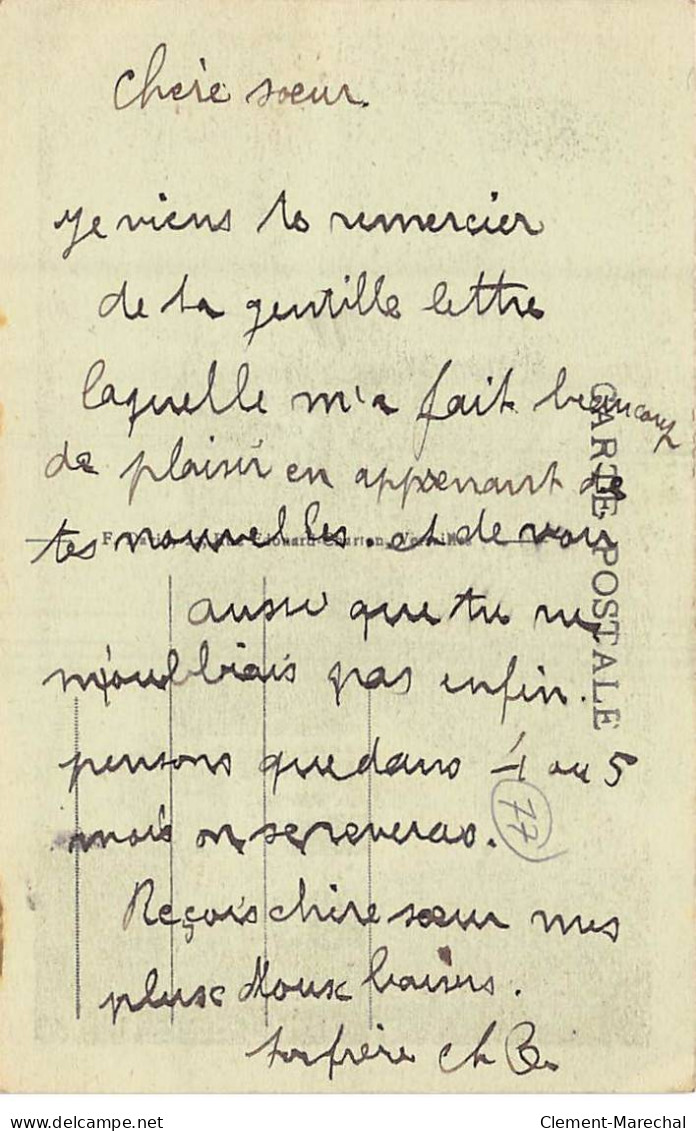 Chère sœur.
Je viens te remercier
de ta gentille lettre
laquelle m'a fait beaucoup
de plaisir en apprenant de
tes nouvelles. et de voir
aussi que tu ne
m'oubliais pas enfin.
pensons que dans 4 ou 5
mois on se reverras.
77
Reçois chère sœur mes
plus doux baisers.
ton frère ch B.
CARTE POSTALE
Clement-Marechal